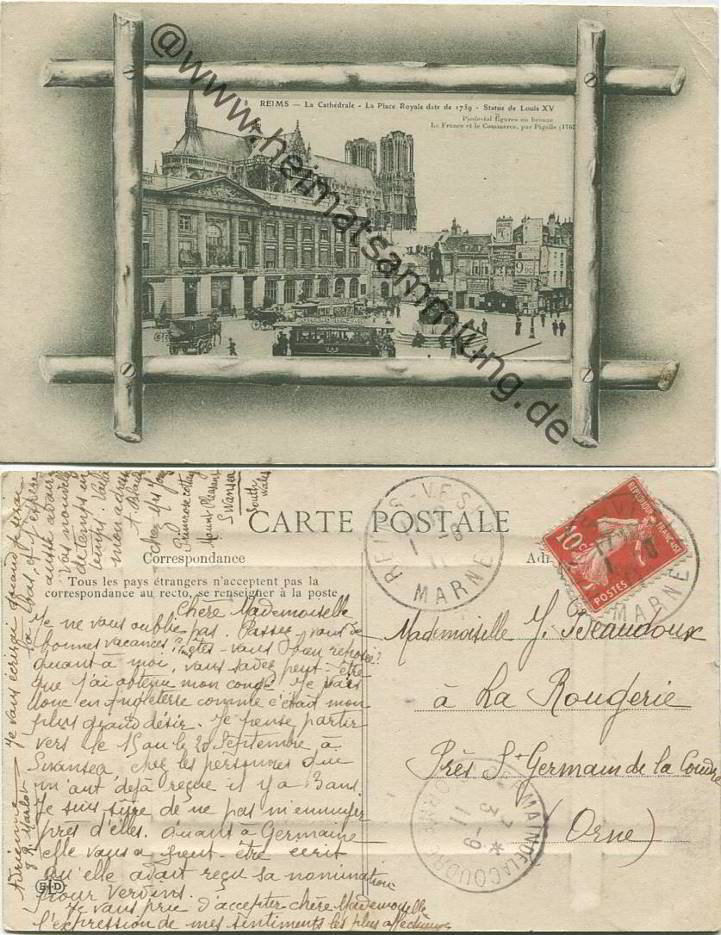 REIMS — La Cathédrale - La Place Royale date de 1759 - Statue de Louis XV
Piédestal figures en bronze
La France et le Commerce, par Pigalle (176
@www.heimatsammlung.de
9
CARTE POSTALE
Correspondance
Tous les pays étrangers n'acceptent pas la
correspondance au recto, se renseigner à la poste
REIMS-VESLE
MARNE
17
1 -9
11
RÉPUBLIQUE FRANÇAISE
20c
POSTES
MARNE
Chère Mademoiselle
Je ne vous oublie pas. Passez-vous de
bonnes vacances? Êtes-vous bien reposée?
Quant à moi, vous savez peut-être
que j'ai obtenu mon congé. Je pars
donc en Angleterre comme c'était mon
plus grand désir. Je pense partir
vers le 15 ou le 20 Septembre à
Swansea chez les personnes qui
m'ont déjà reçue il y a 3 ans.
Je suis sûre de ne pas m'ennuyer
près d'elles. Quant à Germaine
elle vous a peut-être écrit
qu'elle avait reçu sa nomination
pour Vervins.
Je vous prie d'accepter chère Mademoiselle
l'expression de mes sentiments les plus affectueux
Adrienne
Je vous écrirai quand je serai
là-bas et j'espère
aussi avoir
vos nouvelles
de temps en
temps. Voilà
mon adresse
chez
Primrose cottage
Mount Pleasant
Swansea
South
Wales
ELD
Mademoiselle Y. Beaudoux
à La Rougerie
Près St Germain de la Coudre
(Orne)
ST GERMAIN DE LA COUDRE
7
3 -9
11
ORNE